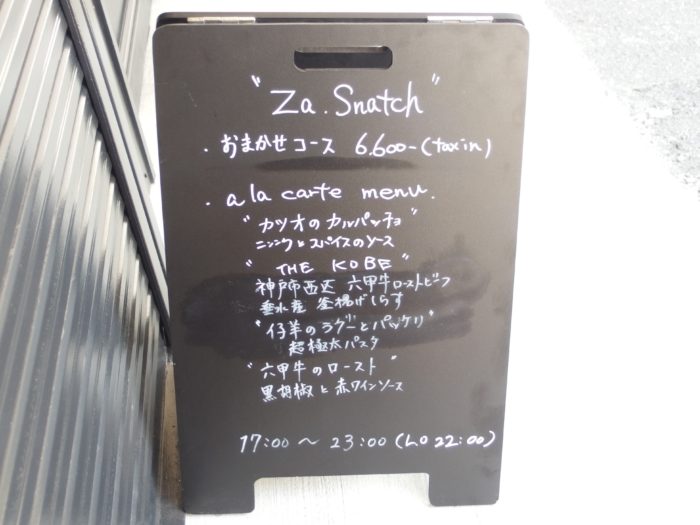 "Za.Snatch"
・おまかせコース 6.600-(taxin)
・a la carte menu.
"カツオのカルパッチョ"
ニンニクとスパイスのソース
"THE KOBE"
神戸市西区 六甲牛ローストビーフ
垂水産 釜揚げしらす
"仔羊のラグーとパッケリ"
超極太パスタ
"六甲牛のロースト"
黒胡椒と赤ワインソース
17:00～23:00(Lo 22:00)